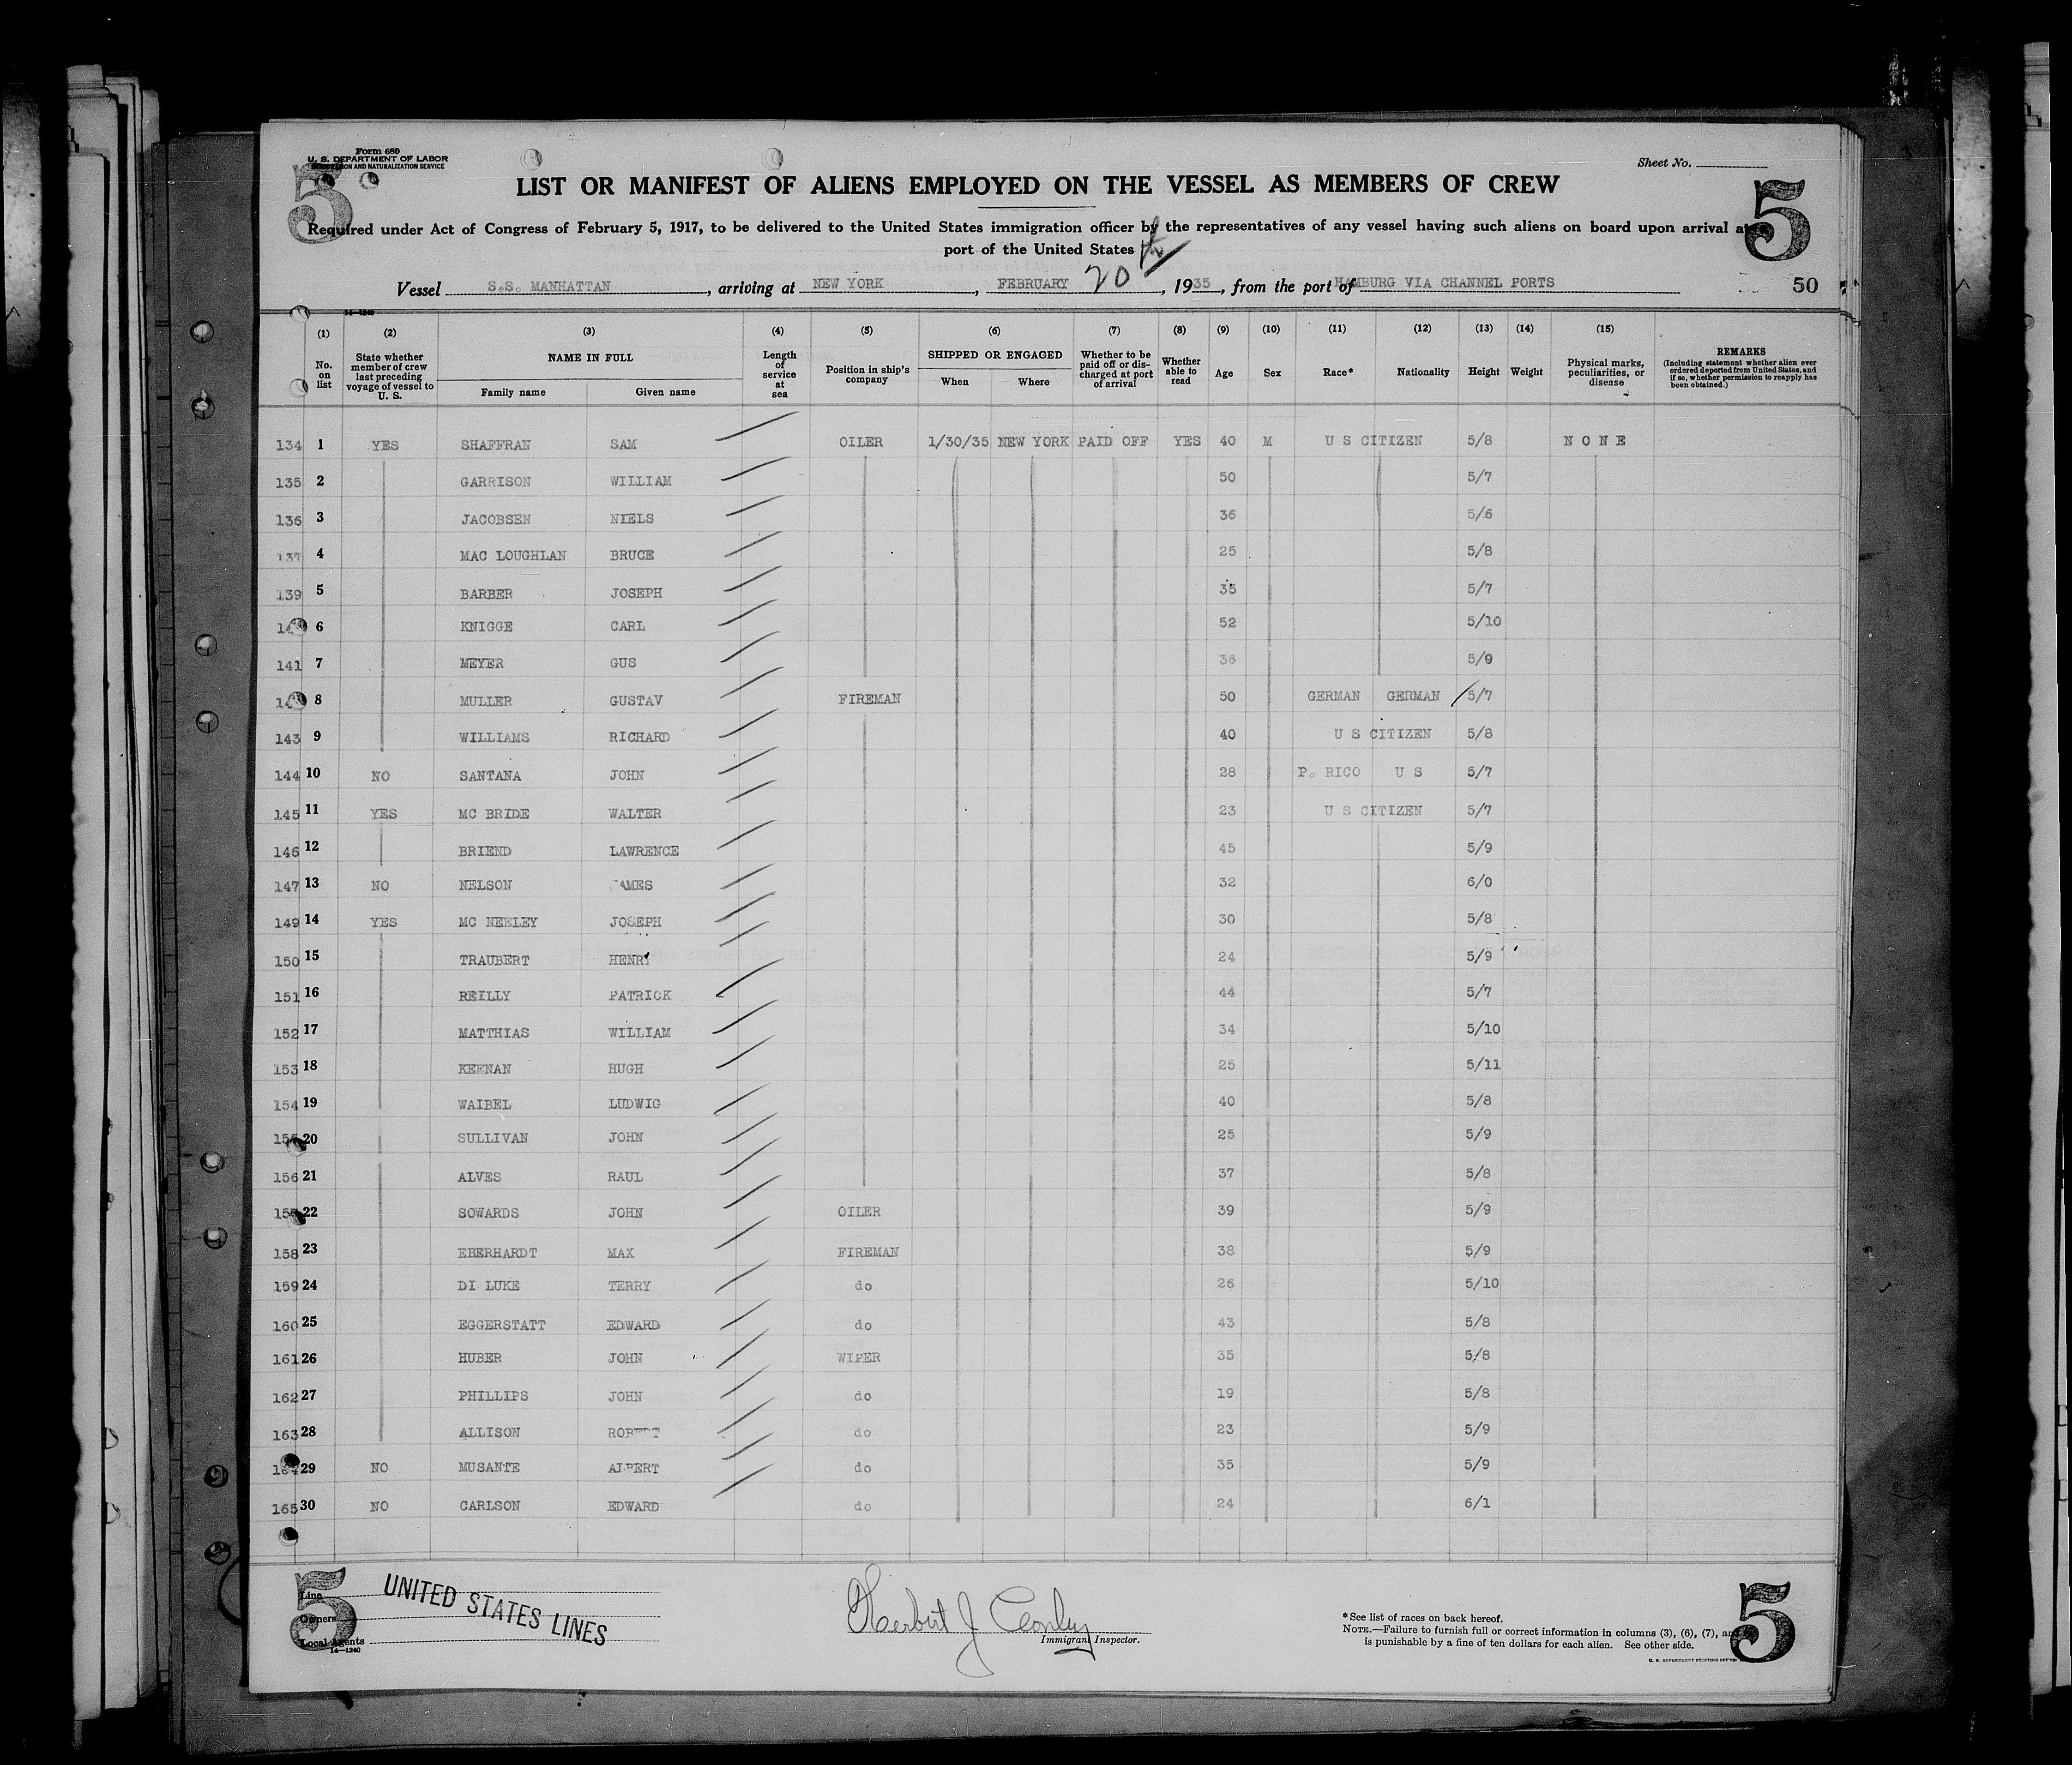 Form 680
U. S. DEPARTMENT OF LABOR
AND NATURALIZATION SERVICE
Sheet No.
5
5
LIST OR MANIFEST OF ALIENS EMPLOYED ON THE VESSEL AS MEMBERS OF CREW
Required under Act of Congress of February 5, 1917, to be delivered to the United States immigration officer by the representatives of any vessel having such aliens on board upon arrival at
port of the United States
Vessel S.S. MANHATTAN, arriving at NEW YORK, FEBRUARY 20th, 1935, from the port of HAMBURG VIA CHANNEL PORTS 50
14—1240
(1) (2) (3) (4) (5) (6) (7) (8) (9) (10) (11) (12) (13) (14) (15)
No. on list State whether member of crew last preceding voyage of vessel to U. S. NAME IN FULL Family name Given name Length of service at sea Position in ship's company SHIPPED OR ENGAGED When Where Whether to be paid off or discharged at port of arrival Whether able to read Age Sex Race* Nationality Height Weight Physical marks, peculiarities, or disease REMARKS (Including statement whether alien ever ordered deported from United States, and if so, whether permission to reapply has been obtained.)
134 1 YES SHAFFRAN SAM OILER 1/30/35 NEW YORK PAID OFF YES 40 M U S CITIZEN 5/8 N O N E
135 2 GARRISON WILLIAM 50 5/7
136 3 JACOBSEN NIELS 36 5/6
137 4 MAC LOUGHLAN BRUCE 25 5/8
139 5 BARBER JOSEPH 35 5/7
6 KNIGGE CARL 52 5/10
141 7 MEYER GUS 36 5/9
8 MULLER GUSTAV FIREMAN 50 GERMAN GERMAN 5/7
143 9 WILLIAMS RICHARD 40 U S CITIZEN 5/8
144 10 NO SANTANA JOHN 28 P. RICO U S 5/7
145 11 YES MC BRIDE WALTER 23 U S CITIZEN 5/7
146 12 BRIEND LAWRENCE 45 5/9
147 13 NO NELSON JAMES 32 6/0
149 14 YES MC NEELEY JOSEPH 30 5/8
150 15 TRAUBERT HENRY 24 5/9
151 16 REILLY PATRICK 44 5/7
152 17 MATTHIAS WILLIAM 34 5/10
153 18 KEENAN HUGH 25 5/11
154 19 WAIBEL LUDWIG 40 5/8
20 SULLIVAN JOHN 25 5/9
156 21 ALVES RAUL 37 5/8
22 SOWARDS JOHN OILER 39 5/9
158 23 EBERHARDT MAX FIREMAN 38 5/9
159 24 DI LUKE TERRY do 26 5/10
160 25 EGGERSTATT EDWARD do 43 5/8
161 26 HUBER JOHN WIPER 35 5/8
162 27 PHILLIPS JOHN do 19 5/8
163 28 ALLISON ROBERT do 23 5/9
29 NO MUSANTE ALBERT do 35 5/9
165 30 NO CARLSON EDWARD do 24 6/1
5
5
Line
Owners
Local Agents
14—1240
UNITED STATES LINES
Herbert J
Immigrant Inspector.
*See list of races on back hereof.
NOTE.—Failure to furnish full or correct information in columns (3), (6), (7), and
is punishable by a fine of ten dollars for each alien. See other side.
U. S. GOVERNMENT PRINTING OFFICE